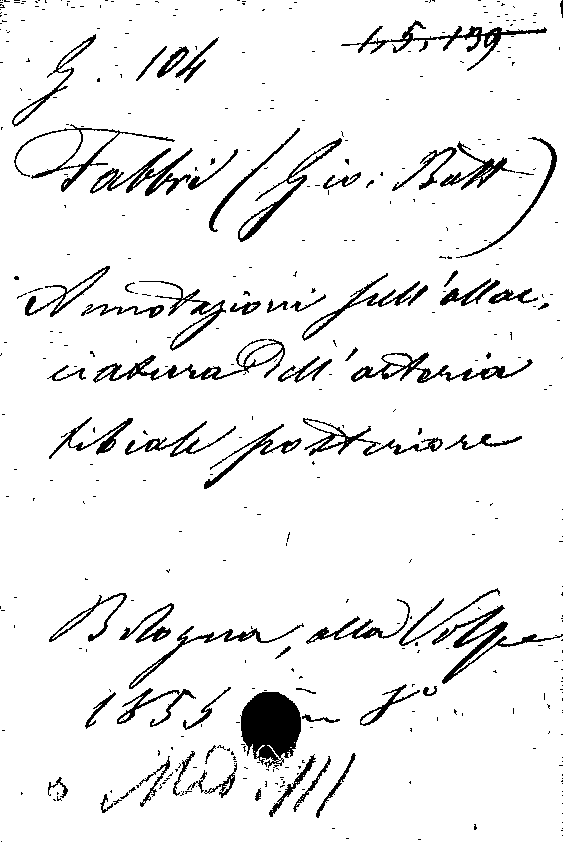 G. 104 1,5,139
Fabbri (Gio: Batt)
Annotazioni sull'allac,
ciatura dell'arteria
tibiale posteriore
Bologna, alla Volpe
1855 in 8º
Med.